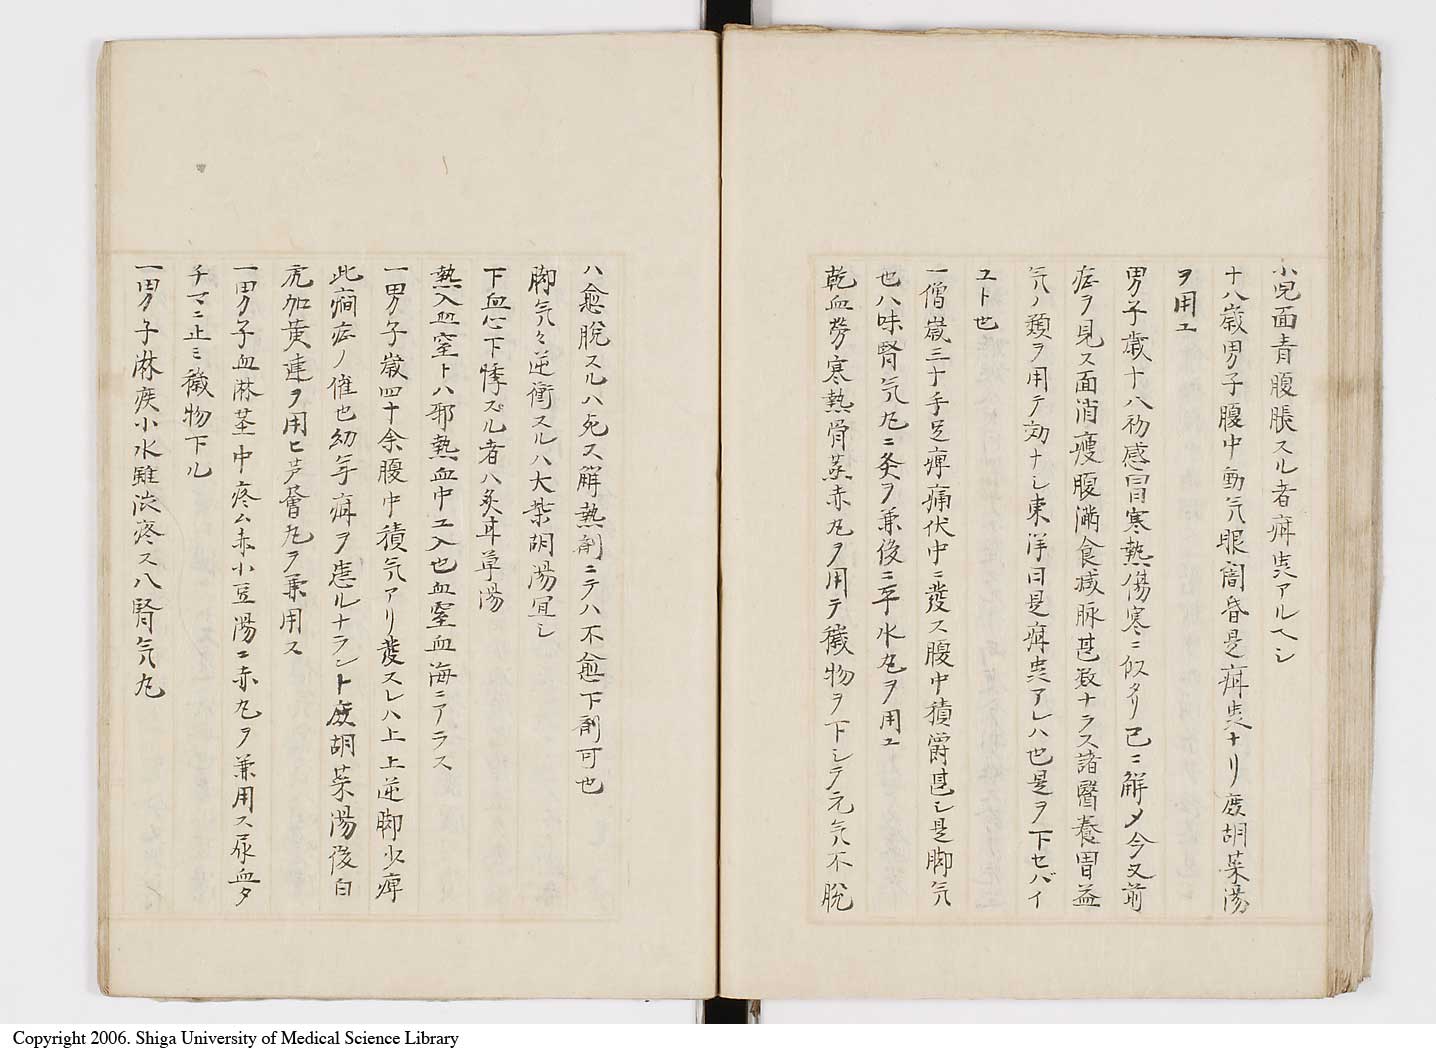 小児面青腹脹スル者痳虫アルヘシ
十八歳男子腹中動気眼闇昏是痳虫ナリ度胡菜湯
ヲ用ユ
男子歳十八初感冒寒熱傷寒ニ似タリ已ニ解メ今又前
症ヲ見ス面消痩腹満食減脉甚数ナラス諸醫養胃益
気ノ類ヲ用テ効ナシ東洋曰是痳虫アレハ也是ヲ下セバイ
ユト也
一僧歳三十手足痺痛伏中ニ發ス腹中積欝甚シ是脚気
也八味腎気丸ニ灸ヲ兼後ニ平水丸ヲ用ユ
乾血勞寒熱骨蒸赤丸ヲ用テ穢物ヲ下シテ元気不脱
ハ愈脱スルハ死ス解熱剤ニテハ不愈下剤可也
脚気々逆衝スルハ大柴胡湯宜シ
下血心下悸ズル者ハ炙甘草湯
熱入血室トハ邪熱血中ユ入也血室血海ニアラス
一男子歳四十余腹中積気アリ發スレハ上上逆脚少痺
此癇症ノ催也幼年痳ヲ患ルナラント度胡菜湯後白
虎加黄連ヲ用ヒ芦薈丸ヲ兼用ス
一男子血淋茎中疼ム赤小豆湯ニ赤丸ヲ兼用ス尿血タ
チマニ止ミ穢物下ル
一男子淋疾小水難渋疼ス八腎気丸
Copyright 2006. Shiga University of Medical Science Library